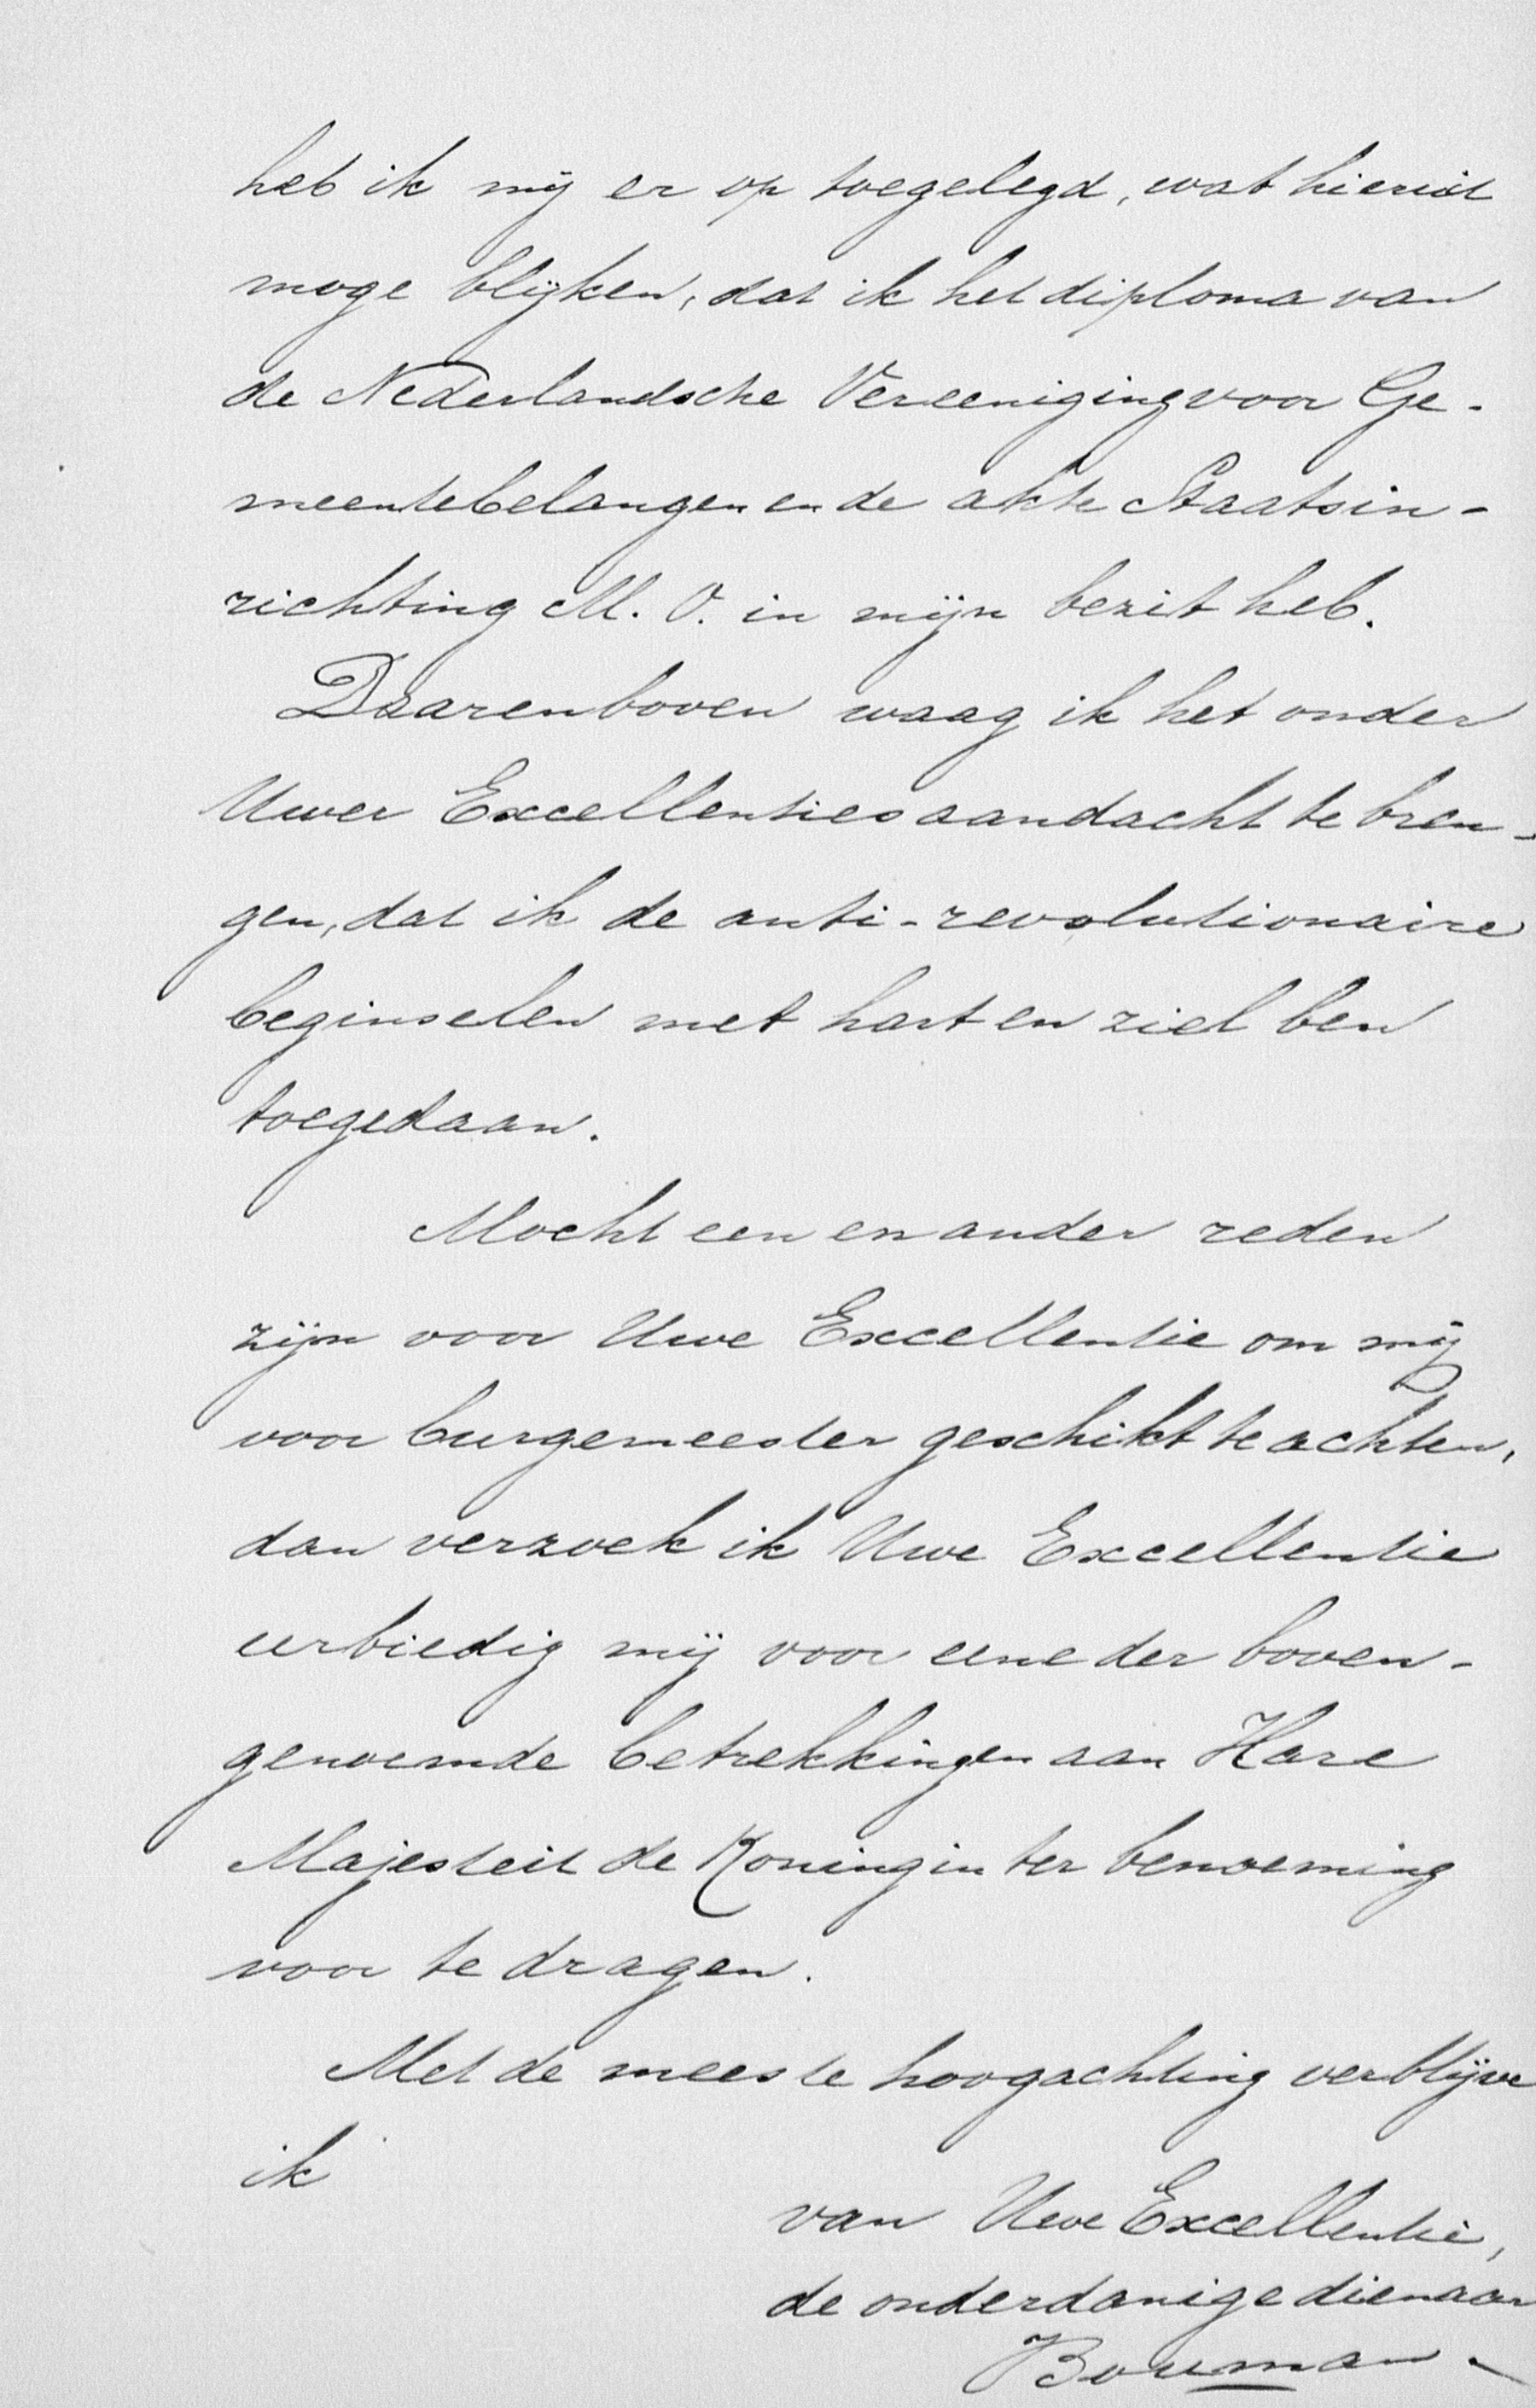 heb ik mij er op toegelegd, wat hieruit
moge blijken, dat ik het diploma van
de Nederlandsche Vereeniging voor Ge-
meentebelangen en de akte Staatsin-
richting M. O. in mijn bezit heb.
Daarenboven waag ik het onder
Uwer Excellenties aandacht te bren-
gen, dat ik de anti-revolutionaire
beginselen met hart en ziel ben
toegedaan.
Mocht een en ander reden
zijn voor Uwe Excellentie om mij
voor burgemeester geschikt te achten,
dan verzoek ik Uwe Excellentie
eerbiedig mij voor eene der boven-
genoemde betrekkingen aan Hare
Majesteit de Koningin ter benoeming
voor te dragen.
Met de meeste hoogachting verblijve
ik
van Uwe Excellentie,
de onderdanige dienaar
Bouman.